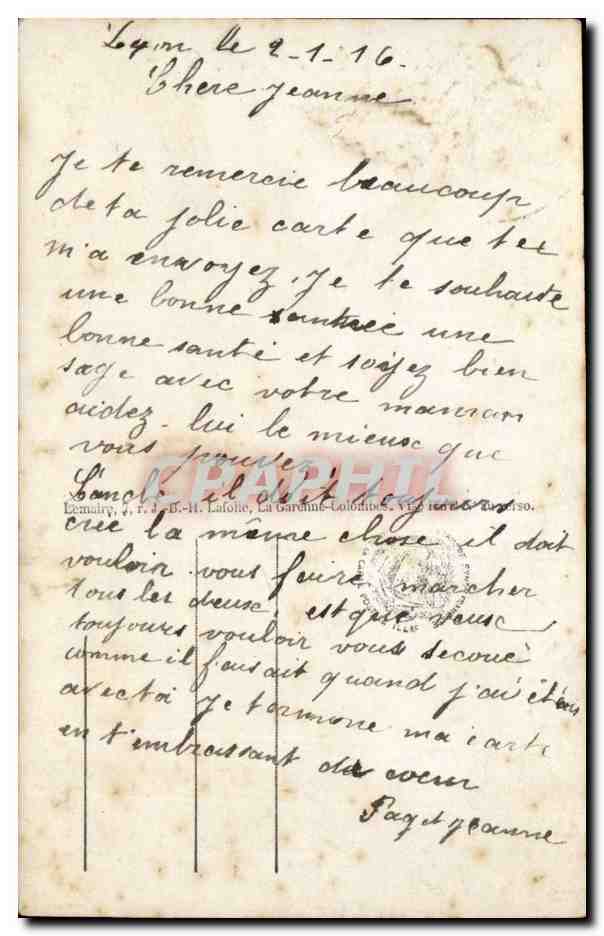 Lyon le 2-1-16.
Chère Jeanne
Je te remercie beaucoup
de ta jolie carte que tu
m'a envoyez, Je te souhaite
une bonne année une
bonne santé et soyez bien
sage avec votre maman
aidez-lui le mieux que
vous pouvez
il doit toujours
Lemaire, J. r. J.-B.-H. Lafolie, La Garenne-Colombes.
crié la même chose il doit
vouloir vous faire marcher
tous les deux est que veux
toujours vouloir vous secoué
comme il faisait quand j'ai été
avec toi Je termine ma carte
en t'embrassant de coeur
Paget Jeanne
CPAPHIL